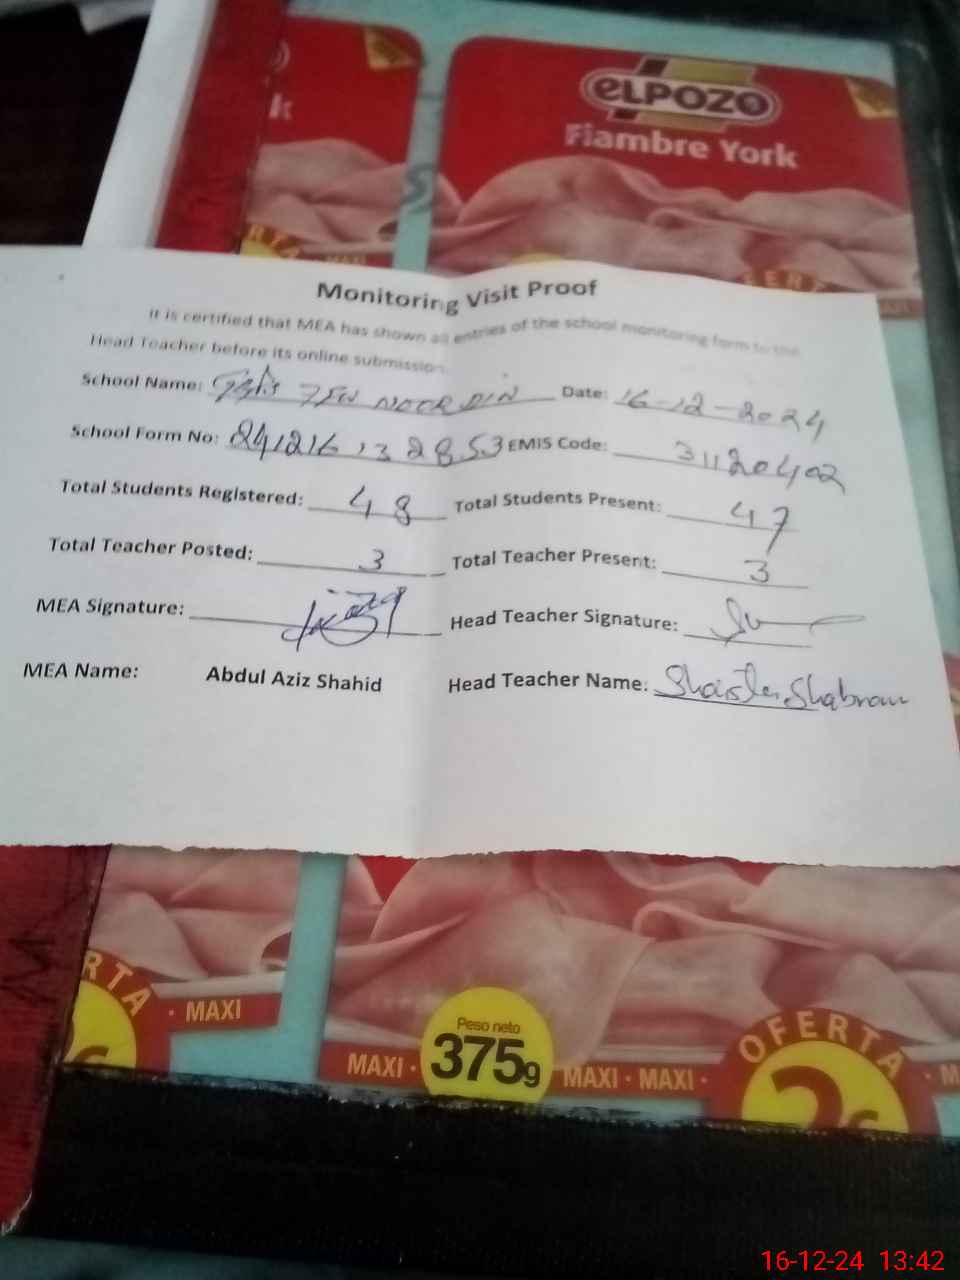 k
ELPOZO
Fiambre York
Monitoring Visit Proof
It is certified that MEA has shown all entries of the school monitoring form to the
Head Teacher before its online submission.
School Name: 7EW NOOR DIN Date: 16-12-2024
School Form No: 241216132853 EMIS Code: 31120402
Total Students Registered: 48 Total Students Present: 47
Total Teacher Posted: 3 Total Teacher Present: 3
MEA Signature: Head Teacher Signature:
MEA Name: Abdul Aziz Shahid Head Teacher Name: Shaista Shabnam
RTA
MAXI
Peso neto
375g
MAXI · MAXI · MAXI ·
OFERTA
2€
16-12-24 13:42